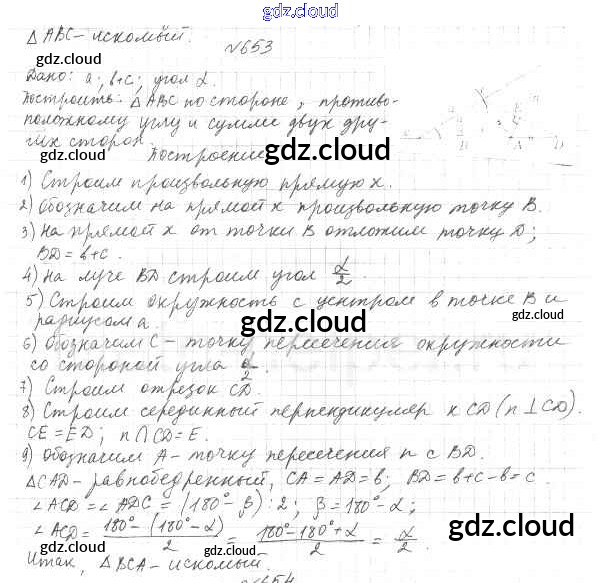 gdz.cloud
△ABC - искомый.
№653
Дано: a; b+c; угол α.
Построить: △ABC по стороне, противо-
положному углу и сумме двух дру-
гих сторон.
gdz.cloud
gdz.cloud
Построение
1) Строим произвольную прямую x.
gdz.cloud
2) Обозначим на прямой x произвольную точку B.
3) На прямой x от точки B отложим точку D;
BD = b+c.
4) На луче BD строим угол α/2.
5) Строим окружность с центром в точке B и
радиусом a.
gdz.cloud
gdz.cloud
6) Обозначим C - точку пересечения окружности
со стороной угла α/2.
7) Строим отрезок CD.
8) Строим серединный перпендикуляр к CD (n ⊥ CD).
CE = ED; n ∩ CD = E.
9) Обозначим A - точку пересечения n с BD.
△CAD - равнобедренный, CA = AD = b; BD = b+c-b = c.
∠ACD = ∠ADC = (180° - β) : 2; β = 180° - α;
∠ACD = (180° - (180° - α))/2 = (180° - 180° + α)/2 = α/2.
gdz.cloud
gdz.cloud
Итак, △BCA - искомый.
gdz.cloud
№654